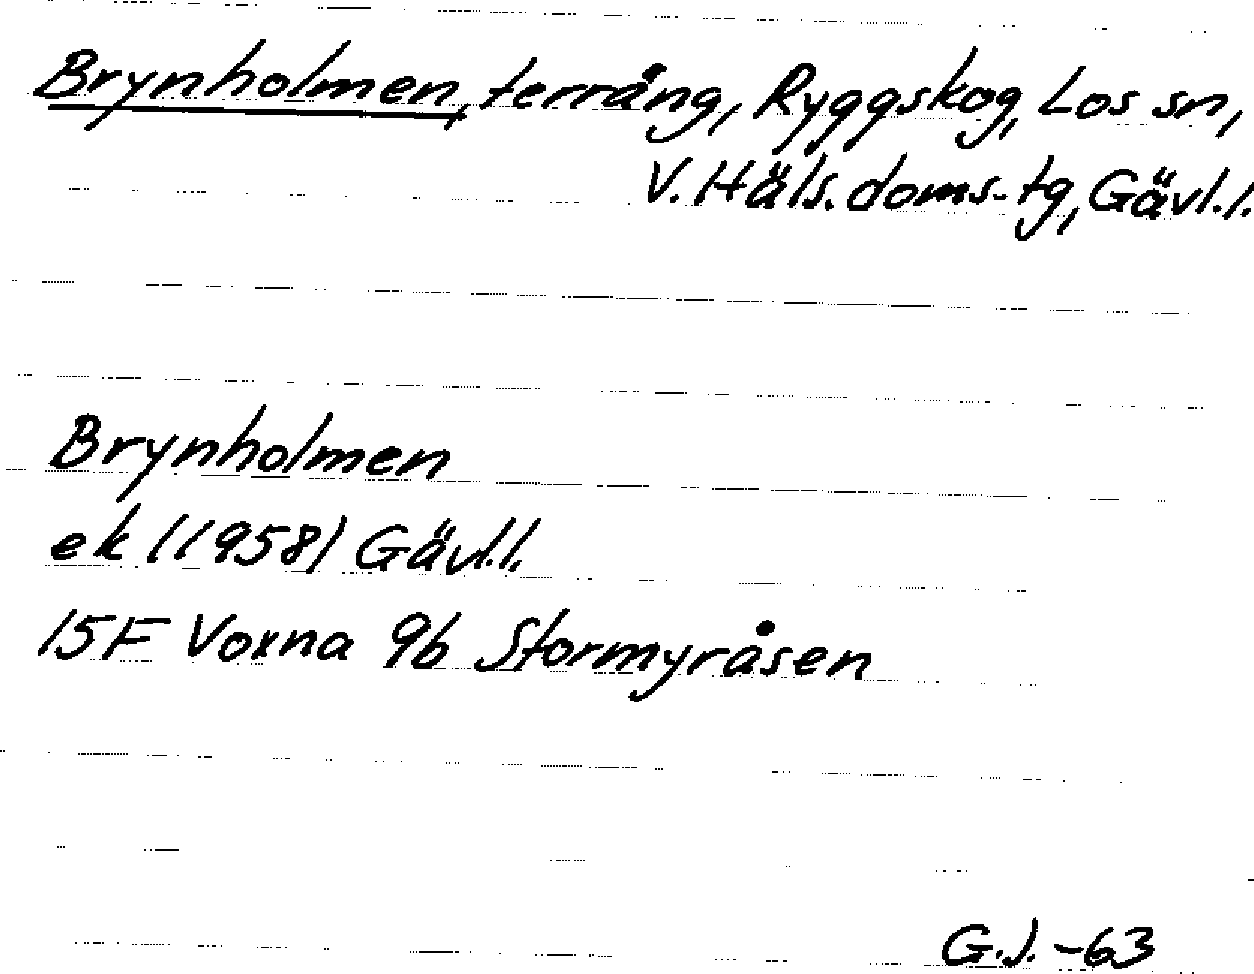 Brynholmen, terräng, Ryggskog, Los sn,
V. Häls. doms-tg, Gävl. l.
Brynholmen
ek (1958) Gävl. l.
15F Voxna 9b Stormyråsen
G.J. -63